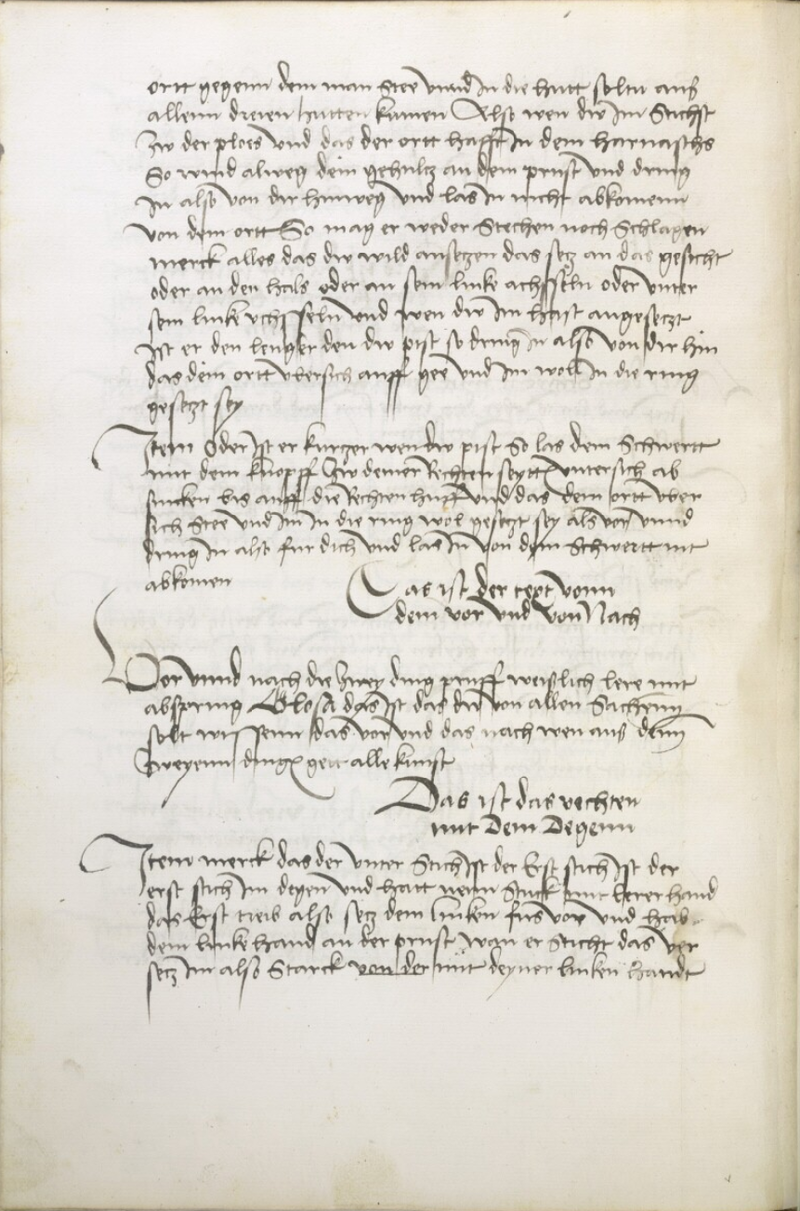 ortt gegenn dem man stee vnnd In die hutt soltu auß
allenn dreien hutten kumen Also wen dw Im Stichst
Zw der ploes vnd das der ortt hafft In dem harnaschs
So wind alweg dein gehultz an dein prust vnd dring
In also von dir hinweg vnd las In nicht abkomenn
von dem ortt So mag er weder stechen noch schlagen
merck alles das dw wild ansetzen das setz an das gesicht
oder an den hals oder an sein linke achsseln oder vnter
sein linke vchsseln vnd wen dw Im hast angesetzt
Ist er den lenger den dw pist so dring In also von dir hin
das dein ortt vbersich auff gee vnd Im wol In die ring
gesetzt sey
Item Oder Ist er kurtzer wen dw pist So las dein Schwertt
mit dem knopff Zw deiner Rechten seytt vntersich ab
sincken bis auff die Rechten huff vnd das dein ortt vber
sich stee vnd Im In die ring wol gesetzt sey als vor vnnd
dring In also fur dich vnd las In von dem Schwertt nit
abkomen
Das ist der text vonn
dem vor vnd von Nach
Vor vnnd nach die Zwey ding pruff weißlich lere mit
abspring Glosa das Ist das dw von allen Sachenn
solt wissenn das vor vnd das nach wen aus denn
Zweyenn dinge gett alle kunst
Das ist das vechten
mit Dem Degenn
Item merck das der vnter Stich Ist der Erst stich Ist der
erst stich Im degen vnd hatt neun stuck mit lerer hand
das Erst treib also setz dein lincken fus vor vnd hab
dein linke hand an der prust wan er sticht das ver
setz Im also Starck von der mit deyner lincken handt